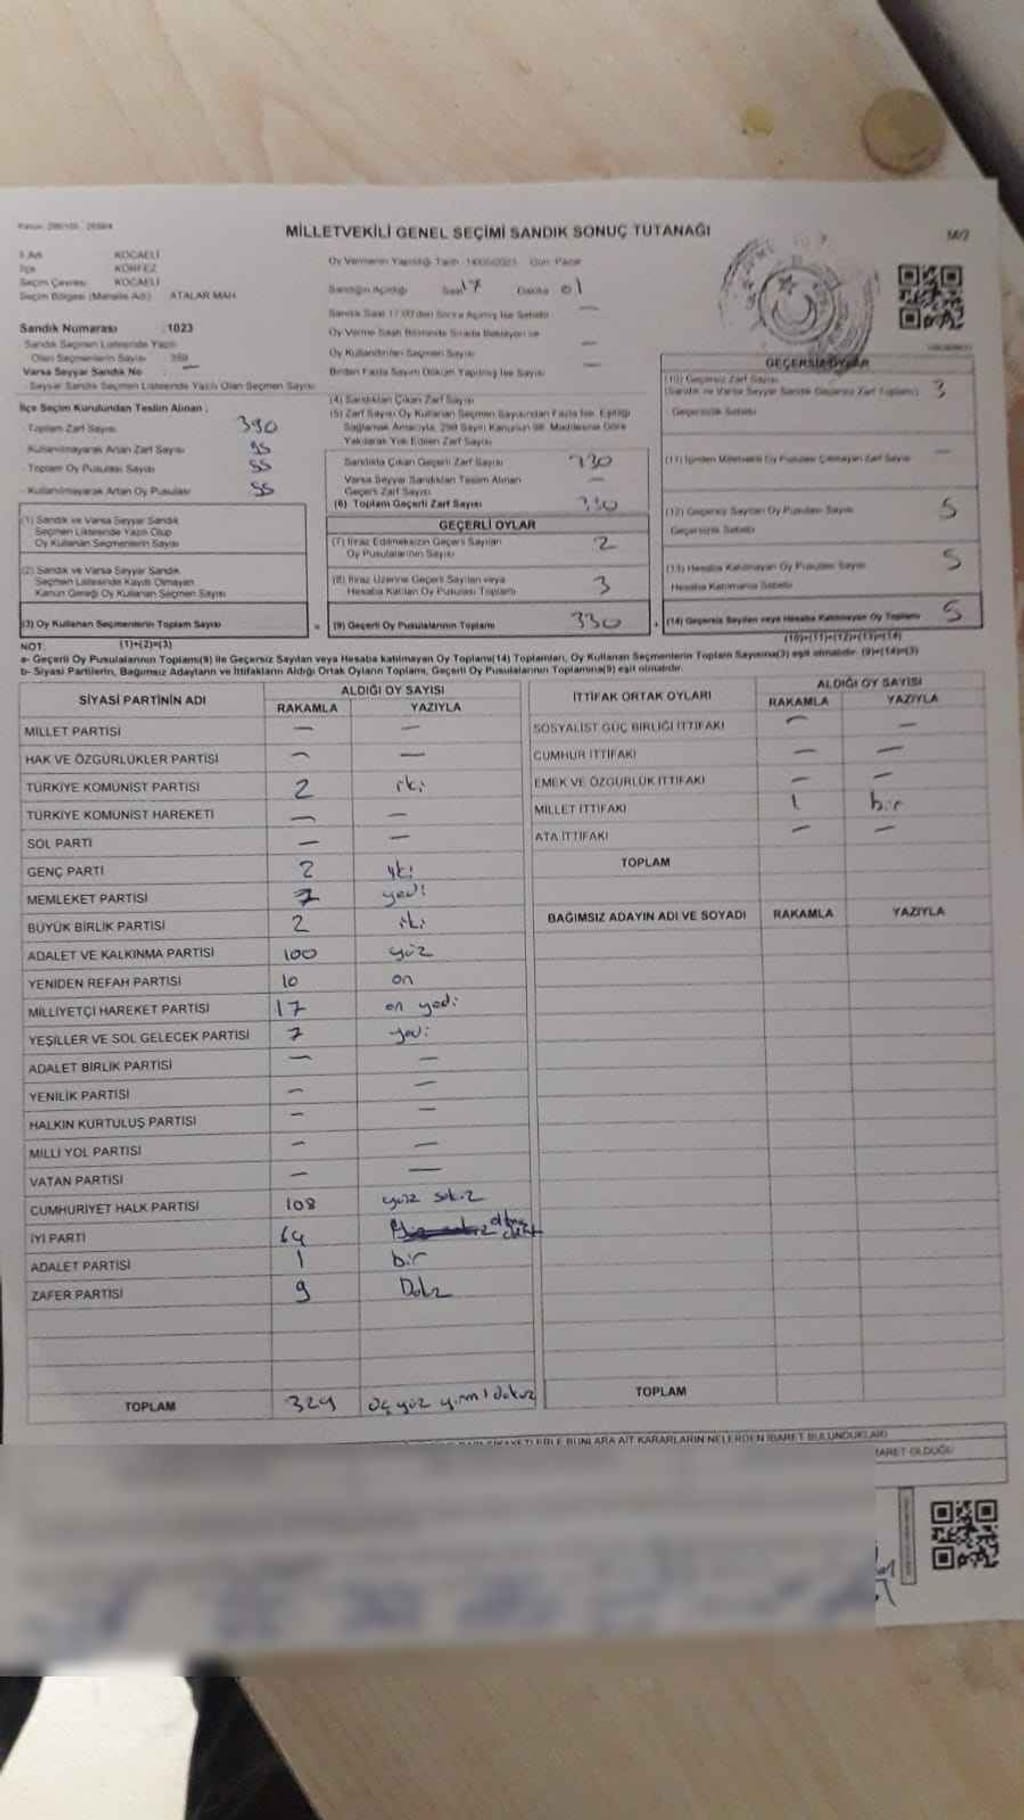 MİLLETVEKİLİ GENEL SEÇİMİ SANDIK SONUÇ TUTANAĞI
M/2
KOCAELİ
İlçe KÖRFEZ
Seçim Çevresi KOCAELİ
Seçim Bölgesi (Mahalle Adı) ATALAR MAH
Sandık Numarası 1023
Sandık Seçmen Listesinde Yazılı
Olan Seçmenlerin Sayısı
Varsa Seyyar Sandık No —
Seyyar Sandık Seçmen Listesinde Yazılı Olan Seçmen Sayısı
İlçe Seçim Kurulundan Teslim Alınan :
Toplam Zarf Sayısı 390
Kullanılmayarak Artan Zarf Sayısı 55
Toplam Oy Pusulası Sayısı 55
Kullanılmayarak Artan Oy Pusulası 55
(1) Sandık ve Varsa Seyyar Sandık
Seçmen Listesinde Yazılı Olup
Oy Kullanan Seçmenlerin Sayısı
(2) Sandık ve Varsa Seyyar Sandık
Seçmen Listesinde Kayıtlı Olmayan
Kanun Gereği Oy Kullanan Seçmen Sayısı
(3) Oy Kullanan Seçmenlerin Toplam Sayısı =
Oy Vermenin Yapıldığı Tarih 14/05/2023 Gün Pazar
Sandığın Açıldığı Saat 17 Dakika 01
Sandık Saat 17:00'den Sonra Açılmış İse Sebebi —
Oy Verme Saati Bitiminde Sırada Bekleyen ve
Oy Kullandırılan Seçmen Sayısı —
Birden Fazla Sayım Döküm Yapılmış İse Sayısı —
(4) Sandıktan Çıkan Zarf Sayısı
(5) Zarf Sayısı Oy Kullanan Seçmen Sayısından Fazla İse, Eşitliği
Sağlamak Amacıyla, 298 Sayılı Kanunun 98. Maddesine Göre
Yakılarak Yok Edilen Zarf Sayısı
Sandıkta Çıkan Geçerli Zarf Sayısı 330
Varsa Seyyar Sandıktan Teslim Alınan
Geçerli Zarf Sayısı —
(6) Toplam Geçerli Zarf Sayısı 330
GEÇERLİ OYLAR
(7) İtiraz Edilmeksizin Geçerli Sayılan
Oy Pusulalarının Sayısı 2
(8) İtiraz Üzerine Geçerli Sayılan veya
Hesaba Katılan Oy Pusulası Toplamı 3
(9) Geçerli Oy Pusulalarının Toplamı 330 +
GEÇERSİZ OYLAR
(10) Geçersiz Zarf Sayısı
(Sandık ve Varsa Seyyar Sandık Geçersiz Zarf Toplamı) 3
Geçersizlik Sebebi
(11) İçinden Milletvekili Oy Pusulası Çıkmayan Zarf Sayısı —
(12) Geçersiz Sayılan Oy Pusulası Sayısı 5
Geçersizlik Sebebi
(13) Hesaba Katılmayan Oy Pusulası Sayısı 5
Hesaba Katılmama Sebebi
(14) Geçersiz Sayılan veya Hesaba Katılmayan Oy Toplamı 5
NOT: (1)+(2)=(3) (10)+(11)+(12)+(13)=(14)
a- Geçerli Oy Pusulalarının Toplamı(9) ile Geçersiz Sayılan veya Hesaba katılmayan Oy Toplamı(14) Toplamları, Oy Kullanan Seçmenlerin Toplam Sayısına(3) eşit olmalıdır. (9)+(14)=(3)
b- Siyasi Partilerin, Bağımsız Adayların ve İttifakların Aldığı Ortak Oyların Toplamı, Geçerli Oy Pusulalarının Toplamına(9) eşit olmalıdır.
SİYASİ PARTİNİN ADI ALDIĞI OY SAYISI
RAKAMLA YAZIYLA
MİLLET PARTİSİ — —
HAK VE ÖZGÜRLÜKLER PARTİSİ — —
TÜRKİYE KOMÜNİST PARTİSİ 2 iki
TÜRKİYE KOMÜNİST HAREKETİ — —
SOL PARTİ — —
GENÇ PARTİ 2 iki
MEMLEKET PARTİSİ 7 yedi
BÜYÜK BİRLİK PARTİSİ 2 iki
ADALET VE KALKINMA PARTİSİ 100 yüz
YENİDEN REFAH PARTİSİ 10 on
MİLLİYETÇİ HAREKET PARTİSİ 17 on yedi
YEŞİLLER VE SOL GELECEK PARTİSİ 7 yedi
ADALET BİRLİK PARTİSİ — —
YENİLİK PARTİSİ — —
HALKIN KURTULUŞ PARTİSİ — —
MİLLİ YOL PARTİSİ — —
VATAN PARTİSİ — —
CUMHURİYET HALK PARTİSİ 108 yüz sekiz
İYİ PARTİ 64 altmış dört
ADALET PARTİSİ 1 bir
ZAFER PARTİSİ 9 Dokuz
TOPLAM 329 üç yüz yirmi dokuz
İTTİFAK ORTAK OYLARI ALDIĞI OY SAYISI
RAKAMLA YAZIYLA
SOSYALİST GÜÇ BİRLİĞİ İTTİFAKI — —
CUMHUR İTTİFAKI — —
EMEK VE ÖZGÜRLÜK İTTİFAKI — —
MİLLET İTTİFAKI 1 bir
ATA İTTİFAKI — —
TOPLAM
BAĞIMSIZ ADAYIN ADI VE SOYADI RAKAMLA YAZIYLA
TOPLAM
BUNLARA AİT KARARLARIN NELERDEN İBARET BULUNDUKLARI
İBARET OLDUĞU